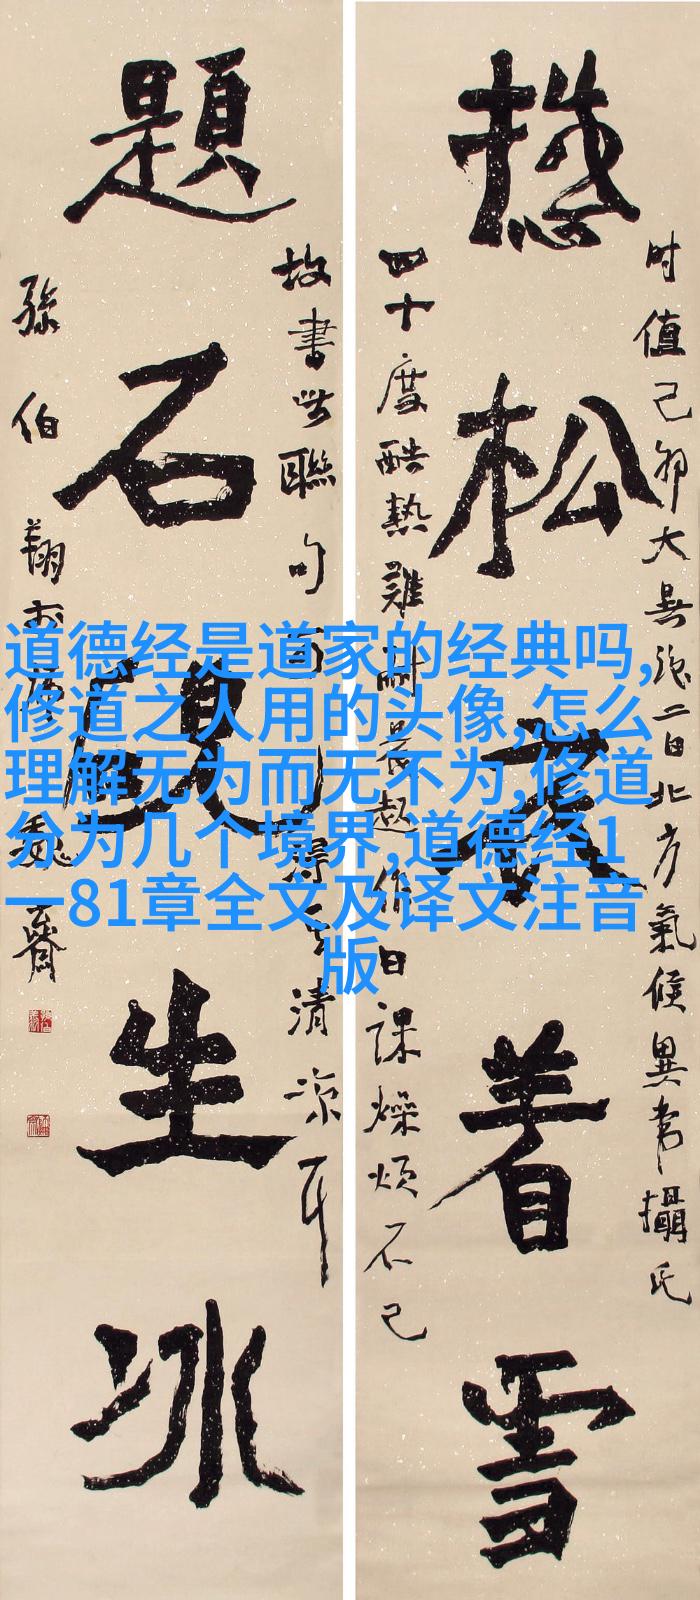 松衣着雪
时值己卯大暑後二日北方氣候異常攝氏
四十度酷熱難耐晨起作日課燥煩不已
題石生冰
故書此聯句清凉耳
孫伯翔齋
道德经是道家的经典吗,
修道之人用的头像,怎么
理解无为而无不为,修道
分为几个境界,道德经1
一81章全文及译文注音
版